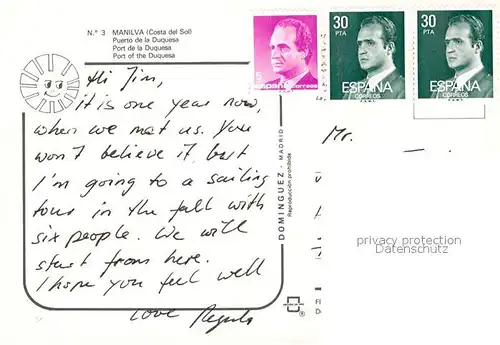 N.° 3 MANILVA (Costa del Sol)
Puerto de la Duquesa
Port de la Duquesa
Port of the Duquesa
Hi Jim,
it is one year now,
when we met us. You
won't believe it, but
I'm going to a sailing
tour in the fall with
six people. We will
start from here.
I hope you feel well
Love Regula
DOMINGUEZ - MADRID
Reproducción prohibida
5
ESPAÑA correos
30
PTA
ESPAÑA
CORREOS
30
PTA
ESPAÑA
CORREOS
Mr.
privacy protection
Datenschutz